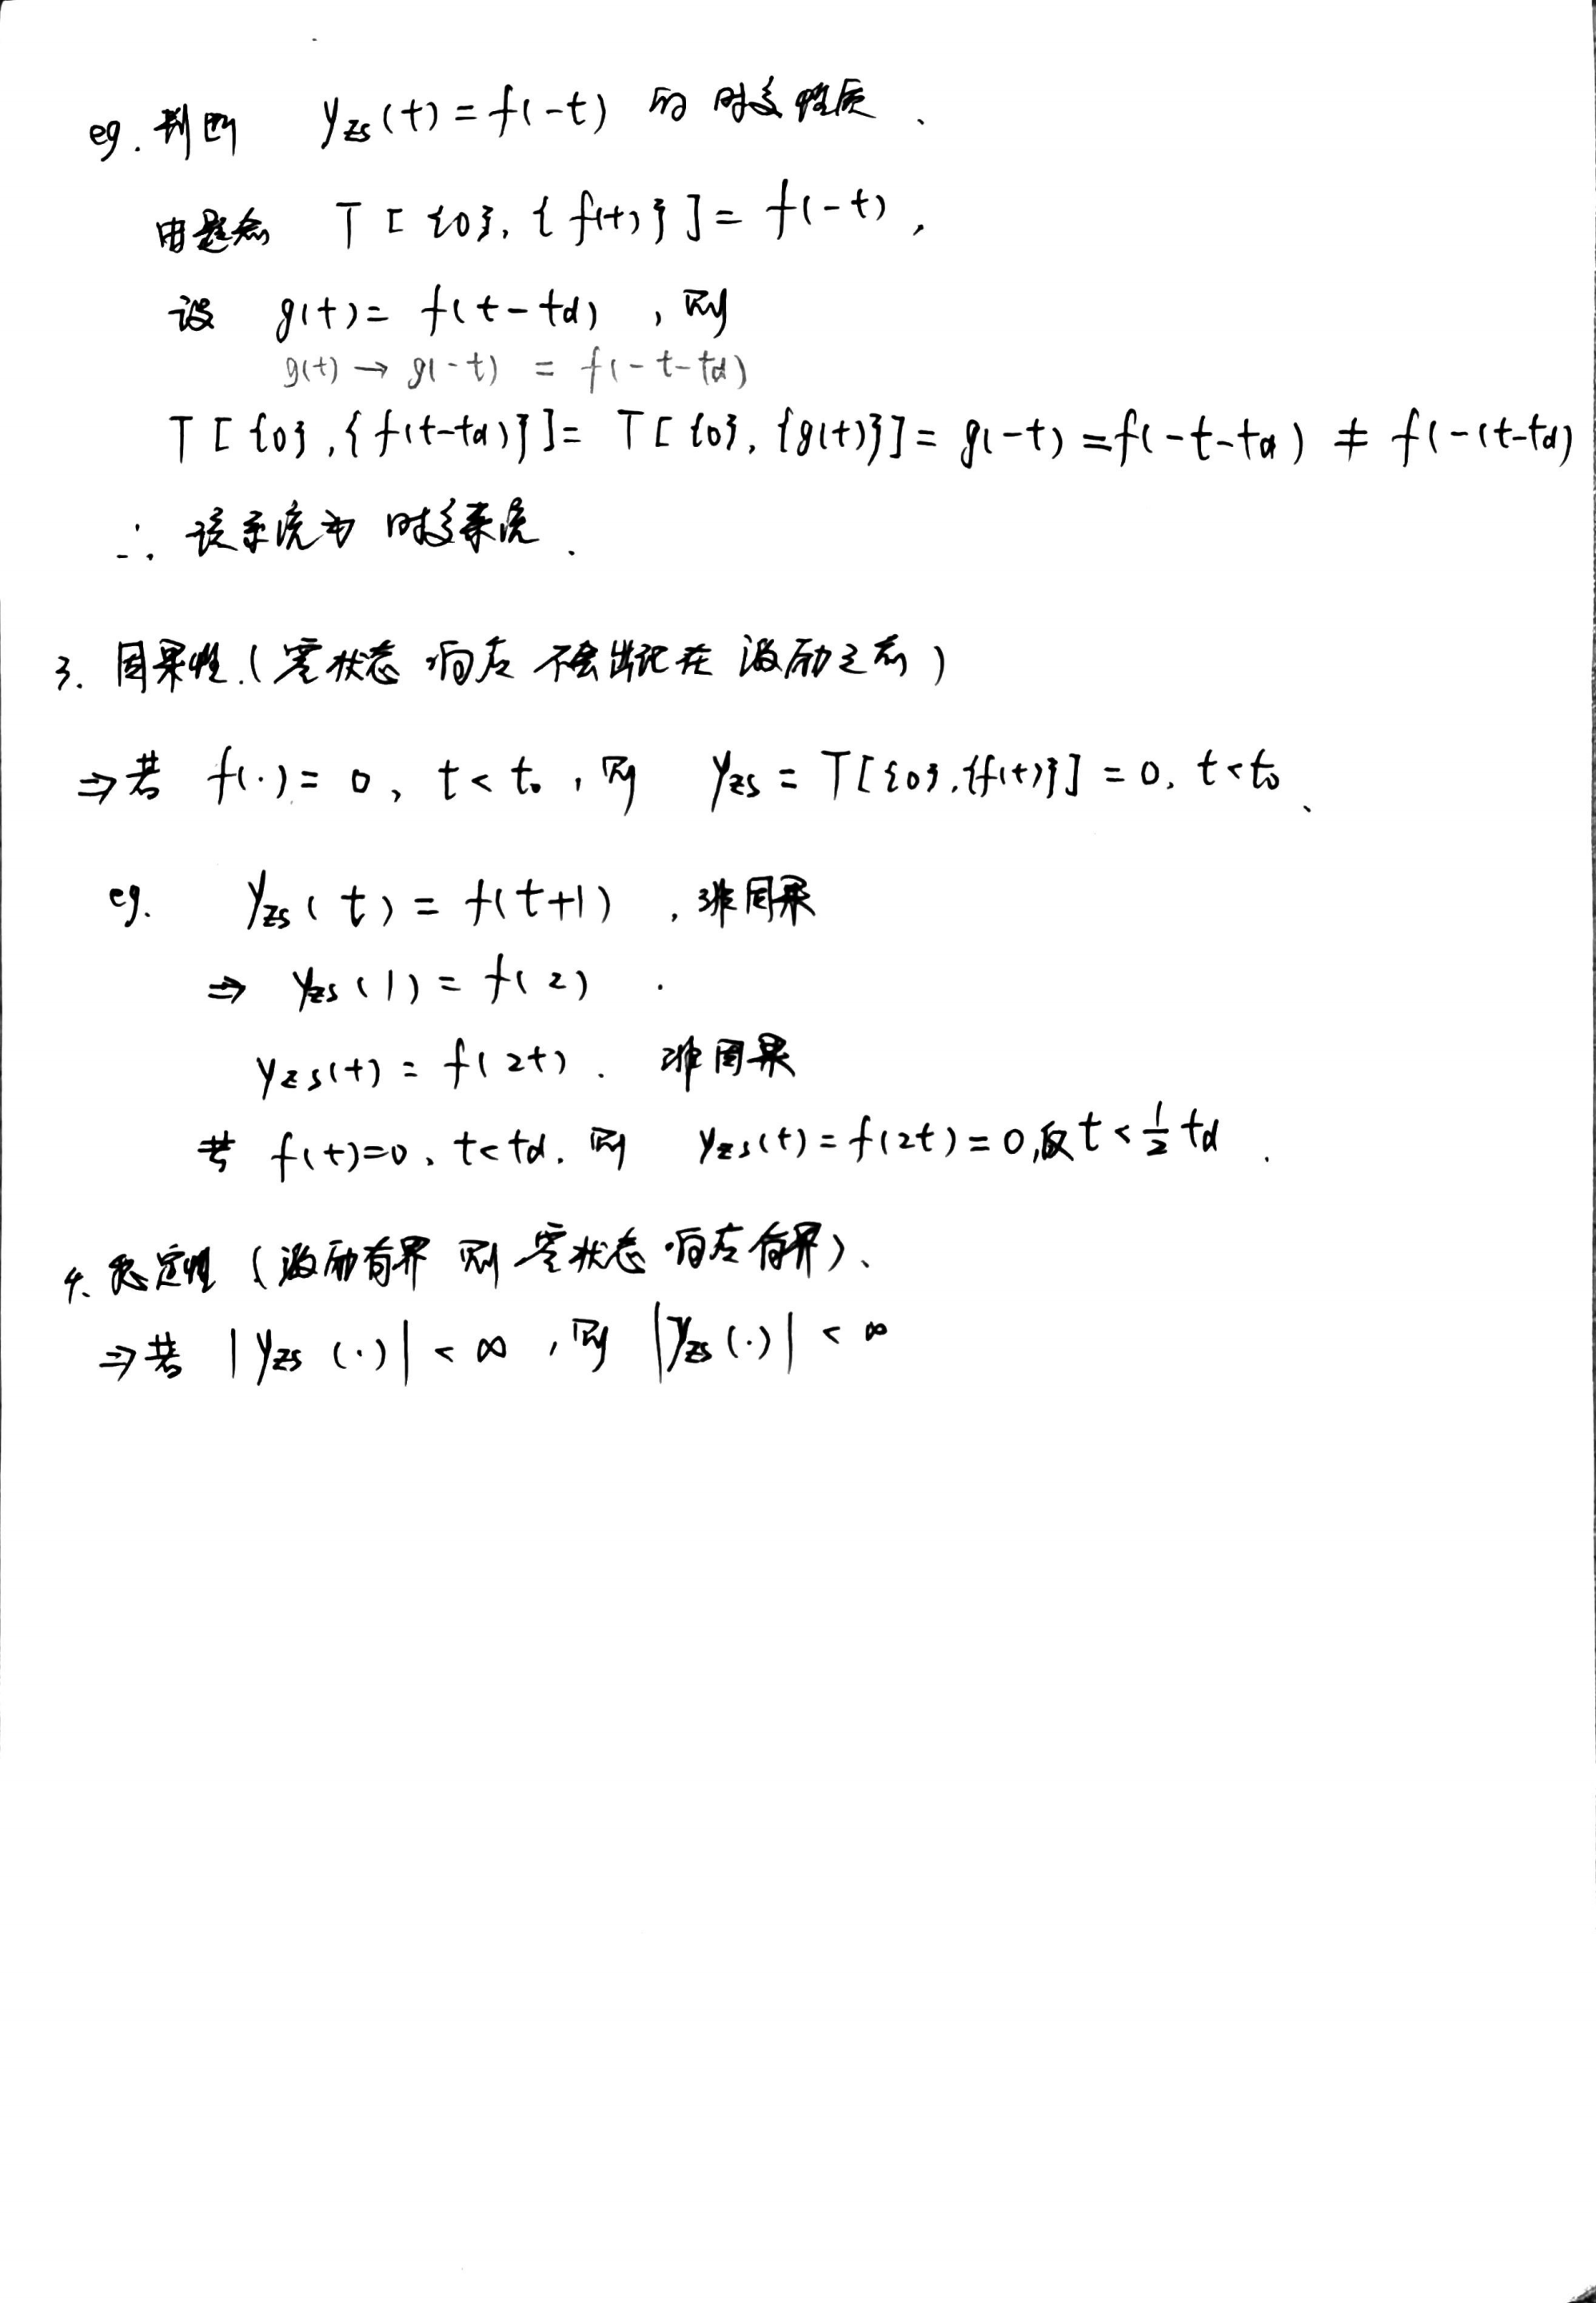 eg. 判断 yzs(t) = f(-t) 的 时变性质.
由题知 T[{0},{f(t)}] = f(-t),
设 g(t) = f(t-td), 则
g(t) → g(-t) = f(-t-td)
T[{0},{f(t-td)}] = T[{0},{g(t)}] = g(-t) = f(-t-td) ≠ f(-(t-td)
∴ 该系统为 时变系统.
3. 因果性.(零状态响应 不会出现在 激励之前)
⇒若 f(·) = 0, t < t₀, 则 yzs = T[{0},{f(t)}] = 0, t < t₀、
eg. yzs(t) = f(t+1), 非因果
⇒ yzs(1) = f(2).
yzs(t) = f(2t). 非因果
若 f(t)=0、t<td. 则 yzs(t) = f(2t) = 0, 仅 t < ½ td.
4. 稳定性 (激励有界 则 零状态响应有界)、
⇒若 |yzs(·)| < ∞, 则 |yzs(·)| < ∞